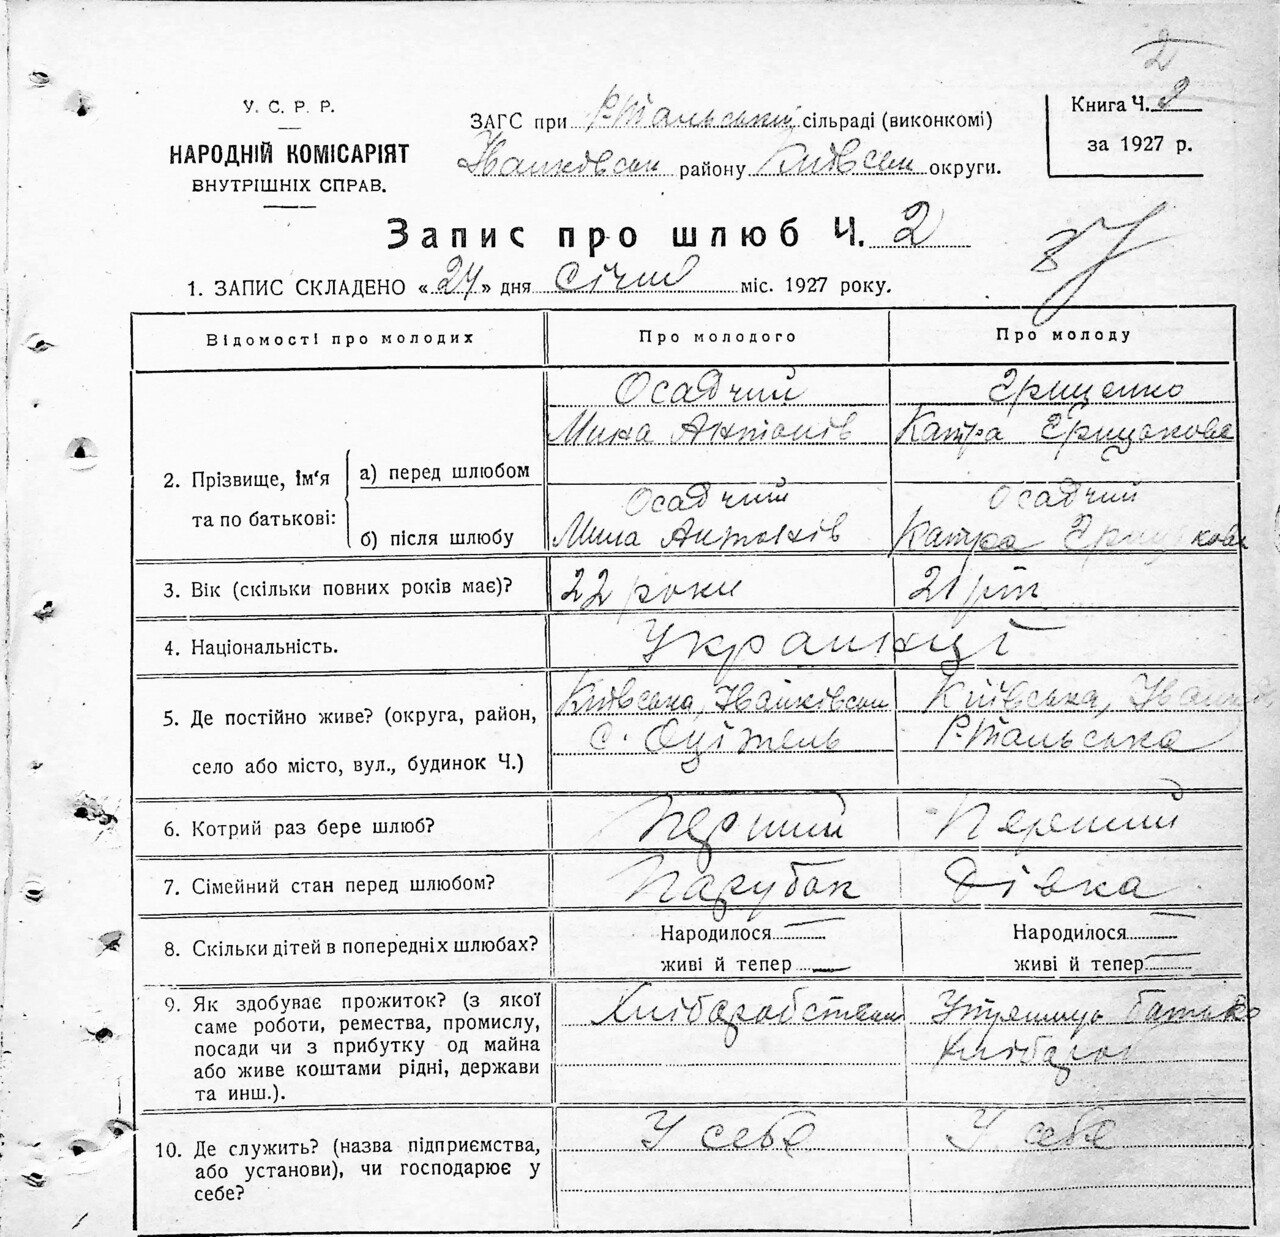 У. С. Р. Р.
НАРОДНІЙ КОМІСАРІЯТ
ВНУТРІШНІХ СПРАВ.
ЗАГС при Р.Тальській сільраді (виконкомі)
Іванківськ району Київськ округи.
Книга Ч. 2
за 1927 р.
Запис про шлюб Ч. 2
87
1. ЗАПИС СКЛАДЕНО «24» дня Січня міс. 1927 року.
Відомості про молодих Про молодого Про молоду
Осадчий Грищенко
Мина Антонів Катра
2. Прізвище, ім'я та по батькові:
а) перед шлюбом
Осадчий Осадчий
б) після шлюбу Мина Антонів Катра
3. Вік (скільки повних років має)? 22 роки 21 рік
4. Національність. Українці
5. Де постійно живе? (округа, район, Київська, Іванківськ Київська,
село або місто, вул., будинок Ч.) с. Оцітель Р.Тальська
6. Котрий раз бере шлюб? Перший Перший
7. Сімейний стан перед шлюбом? Парубок Дівка
8. Скільки дітей в попередніх шлюбах? Народилося — Народилося —
живі й тепер — живі й тепер —
9. Як здобуває прожиток? (з якої Хліборобством батько
саме роботи, ремества, промислу,
посади чи з прибутку од майна
або живе коштами рідні, держави
та инш.).
10. Де служить? (назва підприємства, У себе У себе
або установи), чи господарює у
себе?